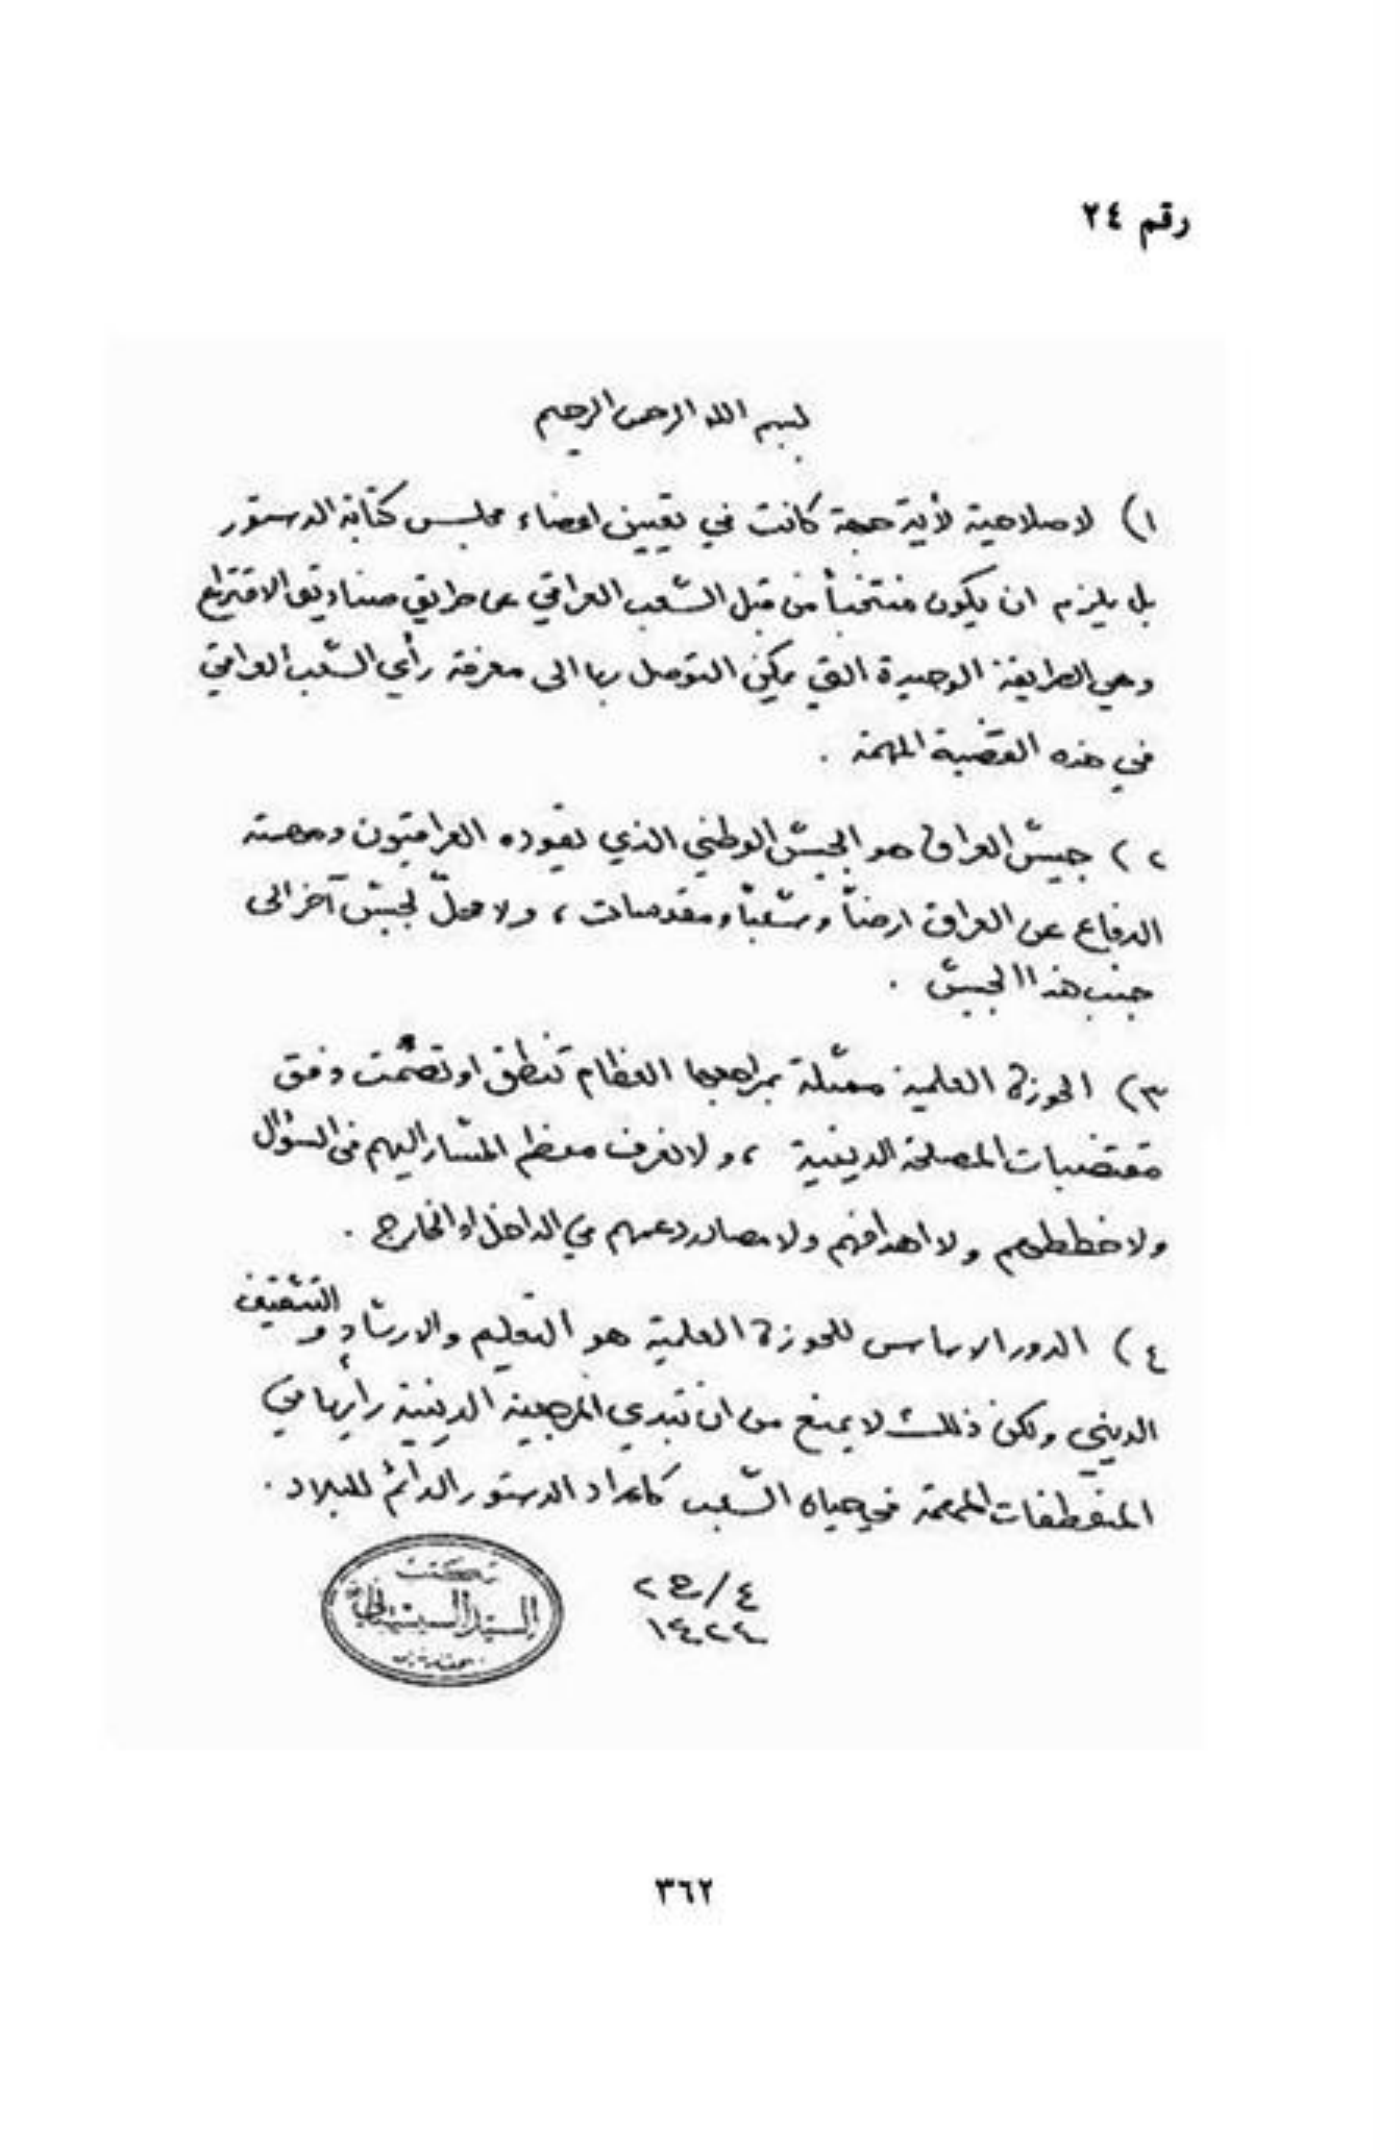 رقم ٢٤
بسم الله الرحمن الرحيم
١) لا صلاحية لأية جهة كانت في تعيين اعضاء مجلس كتابة الدستور
بل يلزم ان يكون منتخباً من قبل الشعب العراقي عن طريق صناديق الاقتراع
وهي الطريقة الوحيدة التي يمكن التوصل بها الى معرفة رأي الشعب العراقي
في هذه القضية المهمة .
٢) جيش العراق هو الجيش الوطني الذي يقوده العراقيون ومهمته
الدفاع عن العراق ارضاً وشعباً ومقدسات ، ولا محلّ لجيش آخر الى
جنب هذا الجيش .
٣) الحوزة العلمية ممثلة بمراجعها العظام تنطق او تصمت وفق
مقتضيات المصلحة الدينية ، ولا نعرف معظم المشار اليهم في السؤال
ولا خططهم ولا اهدافهم ولا مصادر دعمهم في الداخل او الخارج .
٤) الدور الاساس للحوزة العلمية هو التعليم والارشاد و التثقيف
الديني ولكن ذلك لا يمنع من ان تبدي المرجعية الدينية رأيها في
المنعطفات المهمة في حياة الشعب كاعداد الدستور الدائم للبلاد .
٤/ج٢
١٤٢٤
مكتب
السيد السيستاني
٣٦٢